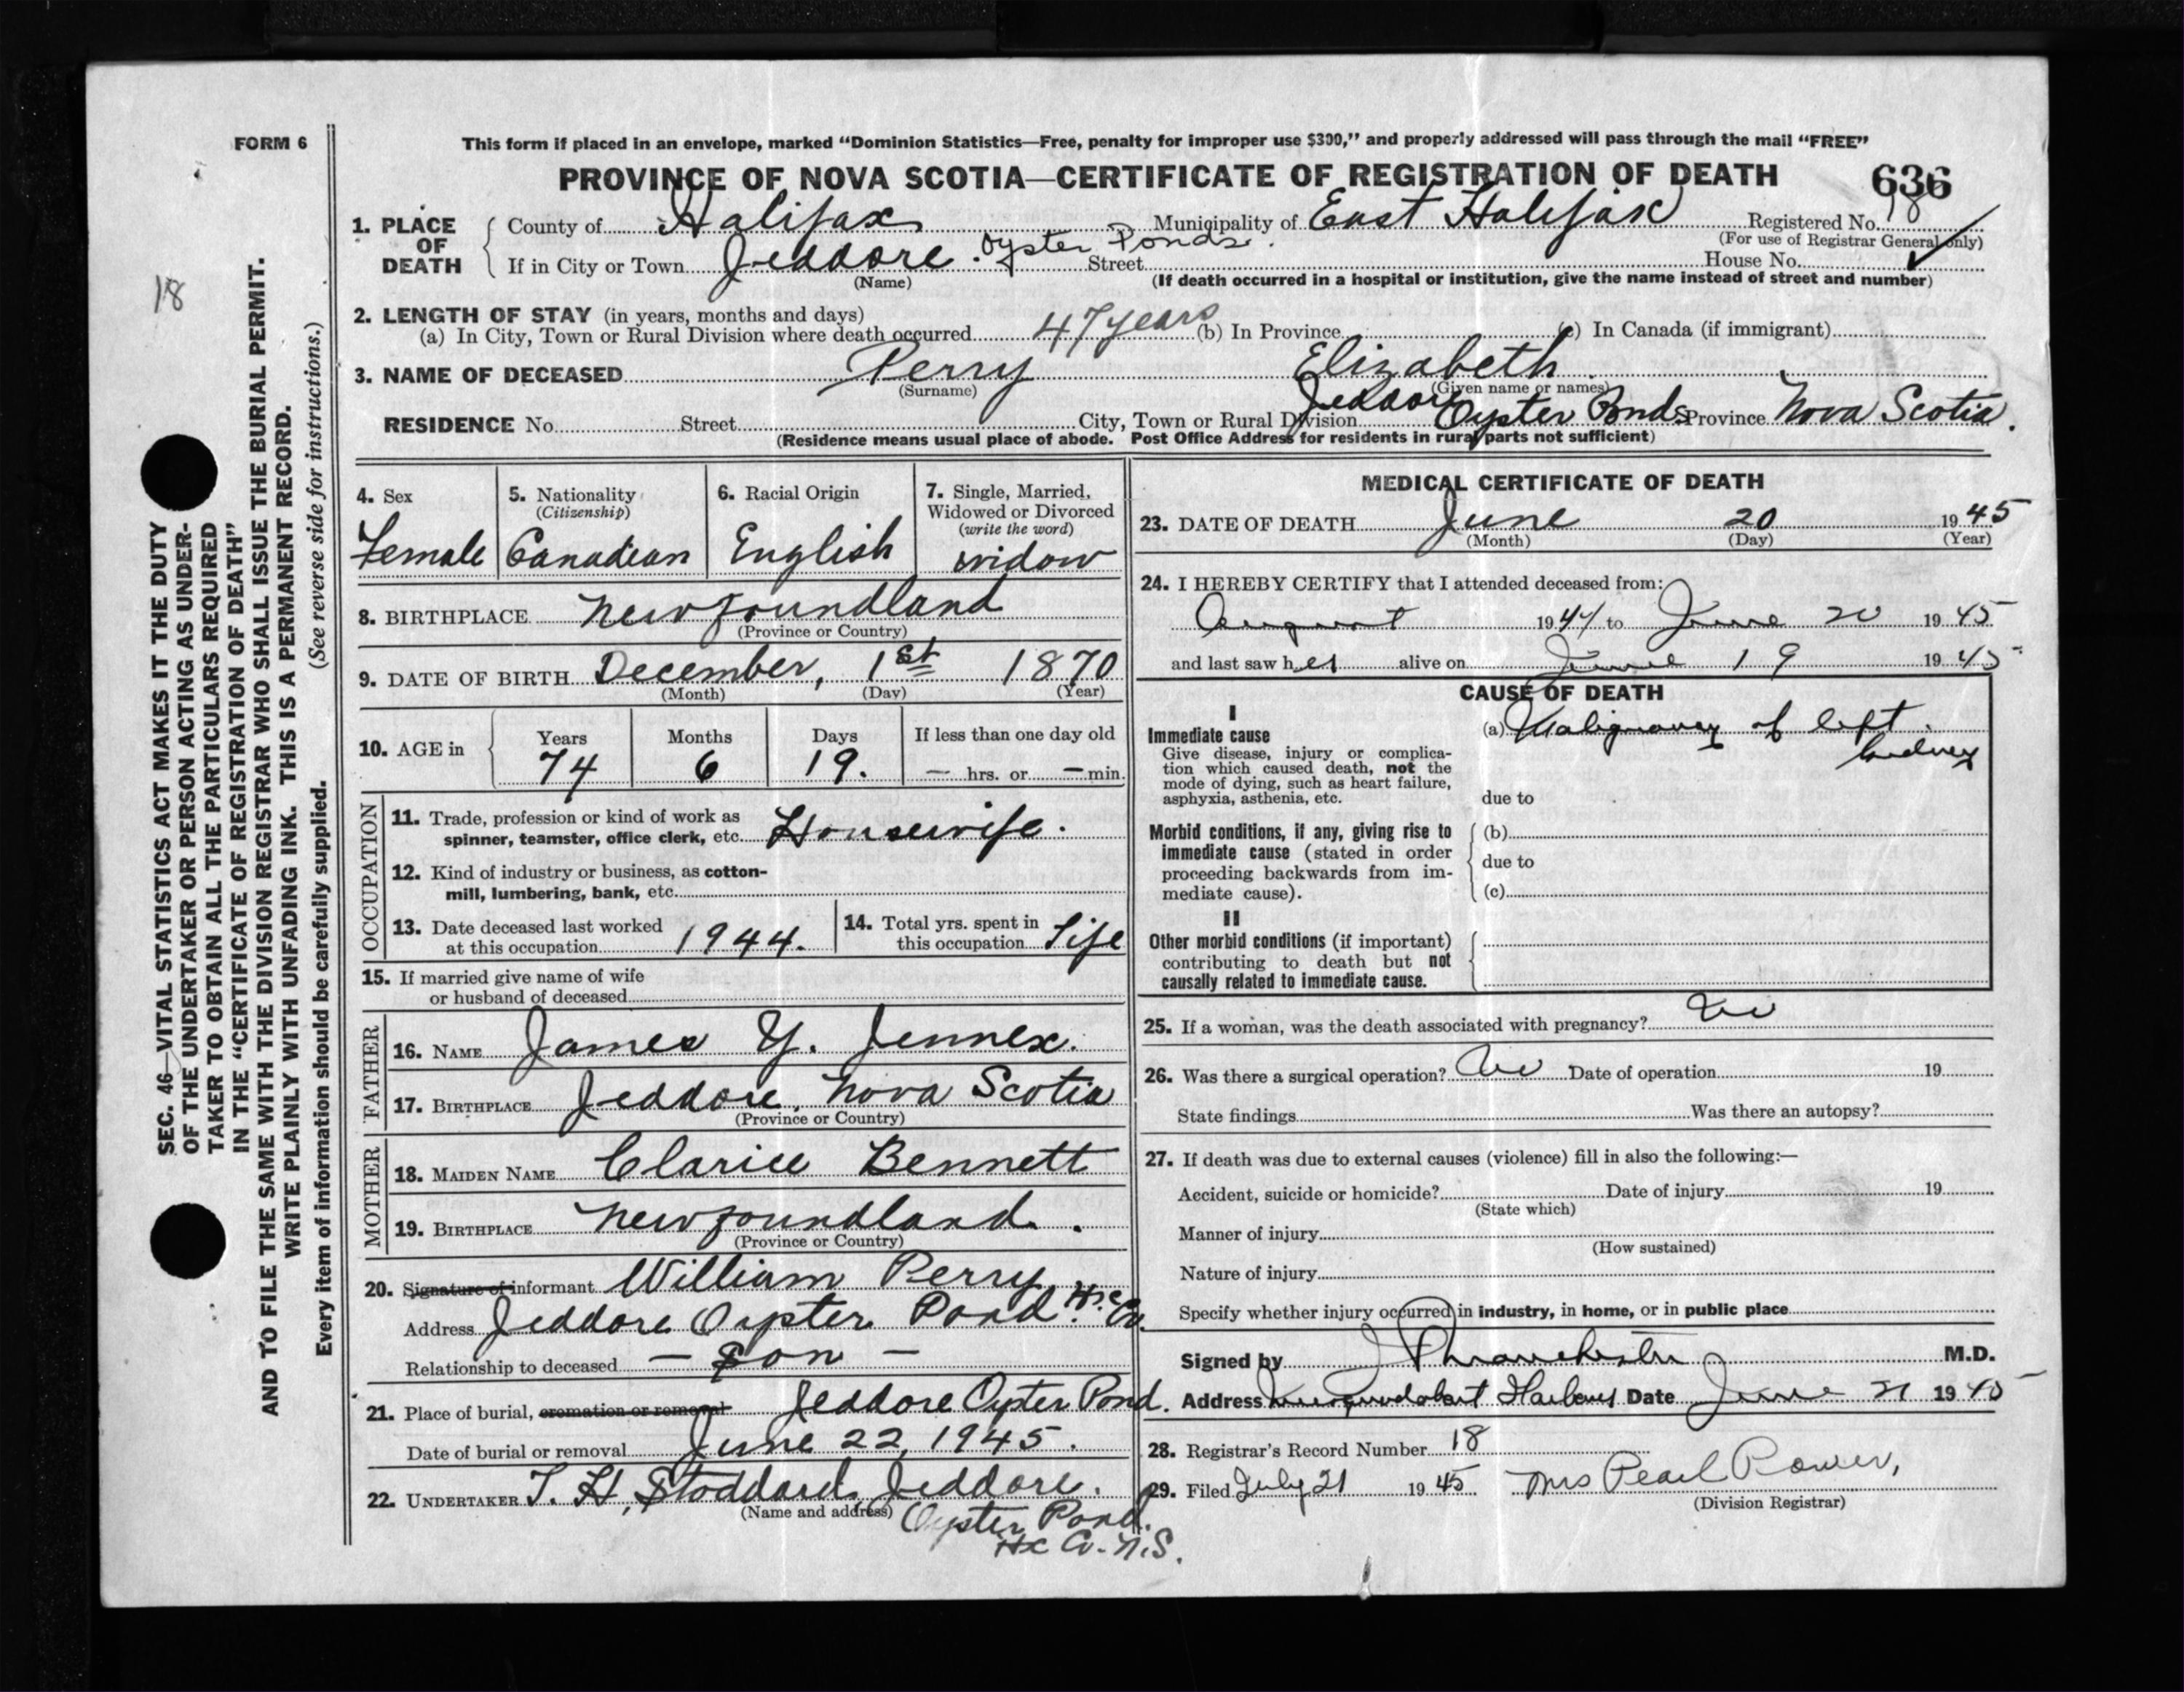 FORM 6
This form if placed in an envelope, marked “Dominion Statistics—Free, penalty for improper use $300,” and properly addressed will pass through the mail “FREE”
PROVINCE OF NOVA SCOTIA—CERTIFICATE OF REGISTRATION OF DEATH 636
1. PLACE OF DEATH County of Halifax Municipality of East Halifax Registered No. 18
(For use of Registrar General only)
If in City or Town Jeddore Oyster Ponds Street House No.
(Name) (If death occurred in a hospital or institution, give the name instead of street and number)
2. LENGTH OF STAY (in years, months and days)
(a) In City, Town or Rural Division where death occurred 47 years (b) In Province (c) In Canada (if immigrant)
3. NAME OF DECEASED Perry Elizabeth
(Surname) (Given name or names)
RESIDENCE No. Street City, Town or Rural Division Jeddore Oyster Ponds Province Nova Scotia.
(Residence means usual place of abode. Post Office Address for residents in rural parts not sufficient)
18
SEC. 46—VITAL STATISTICS ACT MAKES IT THE DUTY
OF THE UNDERTAKER OR PERSON ACTING AS UNDER-
TAKER TO OBTAIN ALL THE PARTICULARS REQUIRED
IN THE “CERTIFICATE OF REGISTRATION OF DEATH”
AND TO FILE THE SAME WITH THE DIVISION REGISTRAR WHO SHALL ISSUE THE BURIAL PERMIT.
WRITE PLAINLY WITH UNFADING INK. THIS IS A PERMANENT RECORD.
Every item of information should be carefully supplied. (See reverse side for instructions.)
4. Sex
Female
5. Nationality
(Citizenship)
Canadian
6. Racial Origin
English
7. Single, Married,
Widowed or Divorced
(write the word)
widow
8. BIRTHPLACE Newfoundland
(Province or Country)
9. DATE OF BIRTH December, 1st 1870
(Month) (Day) (Year)
10. AGE in Years Months Days If less than one day old
74 6 19. — hrs. or — min.
OCCUPATION
11. Trade, profession or kind of work as
spinner, teamster, office clerk, etc. Housewife.
12. Kind of industry or business, as cotton-
mill, lumbering, bank, etc.
13. Date deceased last worked
at this occupation 1944.
14. Total yrs. spent in
this occupation Life
15. If married give name of wife
or husband of deceased
FATHER
16. NAME James Y. Jennex.
17. BIRTHPLACE Jeddore, Nova Scotia
(Province or Country)
MOTHER
18. MAIDEN NAME Clarice Bennett
19. BIRTHPLACE Newfoundland.
(Province or Country)
20. Signature of informant William Perry
Address Jeddore Oyster Pond. Hx. Co.
Relationship to deceased — Son —
21. Place of burial, cremation or removal Jeddore Oyster Pond.
Date of burial or removal June 22, 1945.
22. UNDERTAKER T. H. Stoddard, Jeddore.
(Name and address) Oyster Pond.
Hx Co. N.S.
MEDICAL CERTIFICATE OF DEATH
23. DATE OF DEATH June 20 1945
(Month) (Day) (Year)
24. I HEREBY CERTIFY that I attended deceased from:
August 1944 to June 20 1945
and last saw her alive on June 19 1945
CAUSE OF DEATH
I
Immediate cause
Give disease, injury or complica-
tion which caused death, not the
mode of dying, such as heart failure,
asphyxia, asthenia, etc.
(a) Malignancy of left
kidney
due to
Morbid conditions, if any, giving rise to
immediate cause (stated in order
proceeding backwards from im-
mediate cause).
(b)
due to
(c)
II
Other morbid conditions (if important)
contributing to death but not
causally related to immediate cause.
25. If a woman, was the death associated with pregnancy? No
26. Was there a surgical operation? No Date of operation 19
State findings Was there an autopsy?
27. If death was due to external causes (violence) fill in also the following:—
Accident, suicide or homicide? Date of injury 19
(State which)
Manner of injury
(How sustained)
Nature of injury
Specify whether injury occurred in industry, in home, or in public place
Signed by M.D.
Address Musquodoboit Harbour Date June 21 1945
28. Registrar's Record Number 18
29. Filed July 21 1945 Mrs Pearl Power,
(Division Registrar)